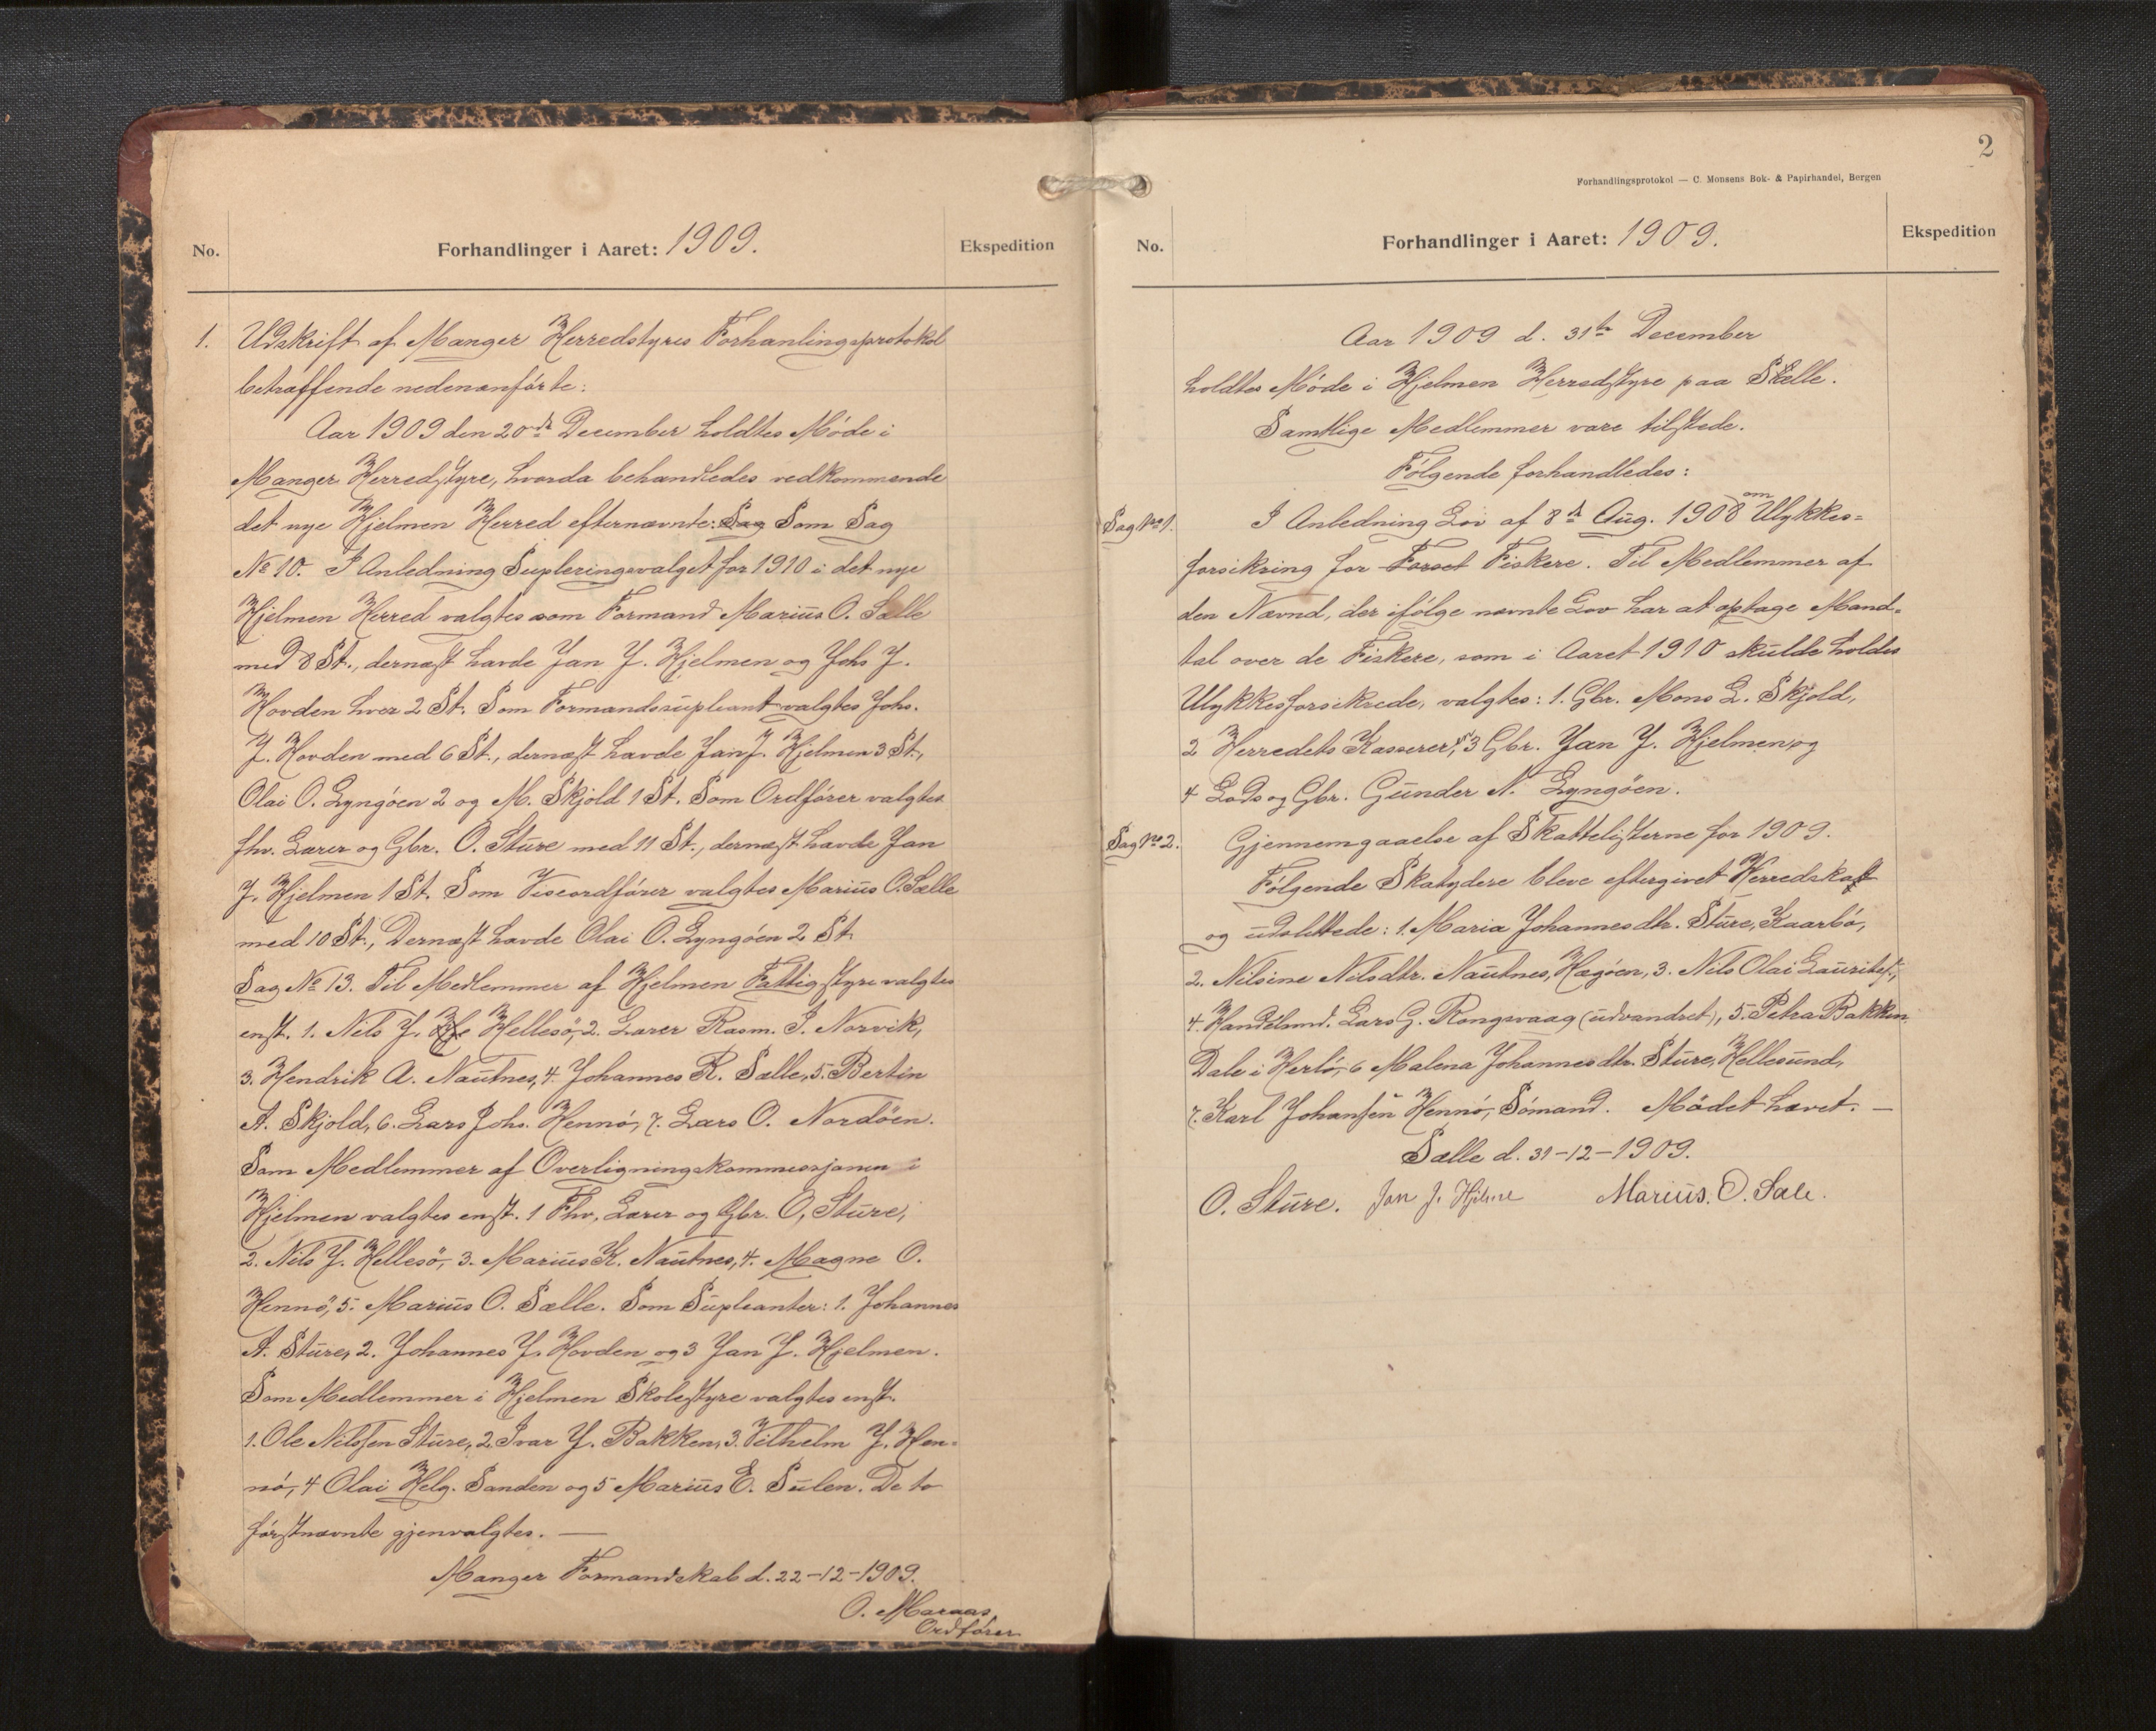 No. Forhandlinger i Aaret: 1909. Ekspedition
1. Udskrift af Manger Herredstyres Forhanlingsprotokol
betræffende nedenanførte:
Aar 1909 den 20de December holdtes Møde i
Manger Herredstyre, hvorda behandledes vedkommende
det nye Hjelmen Herred efternævnte: Sag Som Sag
No 10. I Anledning Supleringsvalget for 1910 i det nye
Hjelmen Herred valgtes som Formand Marius O. Sælle
med 8 St., dernæst havde Jan J. Hjelmen og Johs J.
Hovden hver 2 St. Som Formandssupleant valgtes Johs.
J. Hovden med 6 St., dernæst havde Jan J. Hjelmen 3 St.,
Olai O. Lyngøen 2 og M. Skjold 1 St. Som Ordfører valgtes
fhv. Lærer og Gbr. O. Sture med 11 St., dernæst havde Jan
J. Hjelmen 1 St. Som Viseordfører valgtes Marius O. Sælle
med 10 St., Dernæst havde Olai O. Lyngøen 2 St.
Sag No 13. Til Medlemmer af Hjelmen Fattigstyre valgtes
enst. 1. Nils J. Hellesø, 2. Lærer Rasm. I. Norvik,
3. Hendrik A. Nautnes, 4. Johannes R. Sælle, 5. Bertin
A. Skjold, 6. Lars Johs. Hennø, 7. Lars O. Nordøen.
Som Medlemmer af Overligningskommessjonen i
Hjelmen valgtes enst. 1 Fhv. Lærer og Gbr. O. Sture,
2. Nils J. Hellesø, 3. Marius K. Nautnes, 4. Magne O.
Hennø, 5. Marius O. Sælle. Som Supleanter: 1. Johannes
A. Sture, 2. Johannes J. Hovden og 3 Jan J. Hjelmen.
Som Medlemmer i Hjelmen Skolestyre valgtes enst.
1. Ole Nilssen Sture, 2. Ivar J. Bakken, 3. Vilhelm J. Hen-
nø, 4 Olai Helg. Sanden og 5 Marius E. Sulen. De to
førstnævnte gjenvalgtes. —
Manger Formandskab d. 22-12-1909.
O. Maraas
Ordfører
2
Forhandlingsprotokol — C. Monsens Bok- & Papirhandel, Bergen
No. Forhandlinger i Aaret: 1909. Ekspedition
Aar 1909 d. 31te December
holdtes Møde i Hjelmen Herredstyre paa Sælle.
Samtlige Medlemmer vare tilstede.
Følgende forhandledes:
Sag No 1. I Anledning Lov af 8de Aug. 1908 om Ulykkes-
forsikring for Fiskere. Til Medlemmer af
den Nævnd, der ifølge nævnte Lov har at optage Mand-
tal over de Fiskere, som i Aaret 1910 skulde holdes
Ulykkesforsikrede, valgtes: 1. Gbr. Mons L. Skjold,
2 Herredets Kasserer, 3 Gbr. Jan J. Hjelmen og
4 Lods og Gbr. Gunder N. Lyngøen.
Sag No 2. Gjennemgaaelse af Skattelisterne for 1909.
Følgende Skatydere bleve eftergivet Herredskat
og udslettede: 1. Maria Johannesdtr. Sture, Kaarbø,
2. Nilsine Nilsdtr. Nautnes, Hægøen, 3. Nils Olai Lauritss.,
4. Handelsmd. Lars G. Rongevaag (udvandret), 5. Petra Bakken
Dale i Herlø, 6 Malena Johannesdtr. Sture, Hellesund,
7. Karl Johansen Hennø, Sømand. Mødet hævet. —
Sælle d. 31-12-1909.
O. Sture. Jan J. Hjelme Marius. O. Sæle.